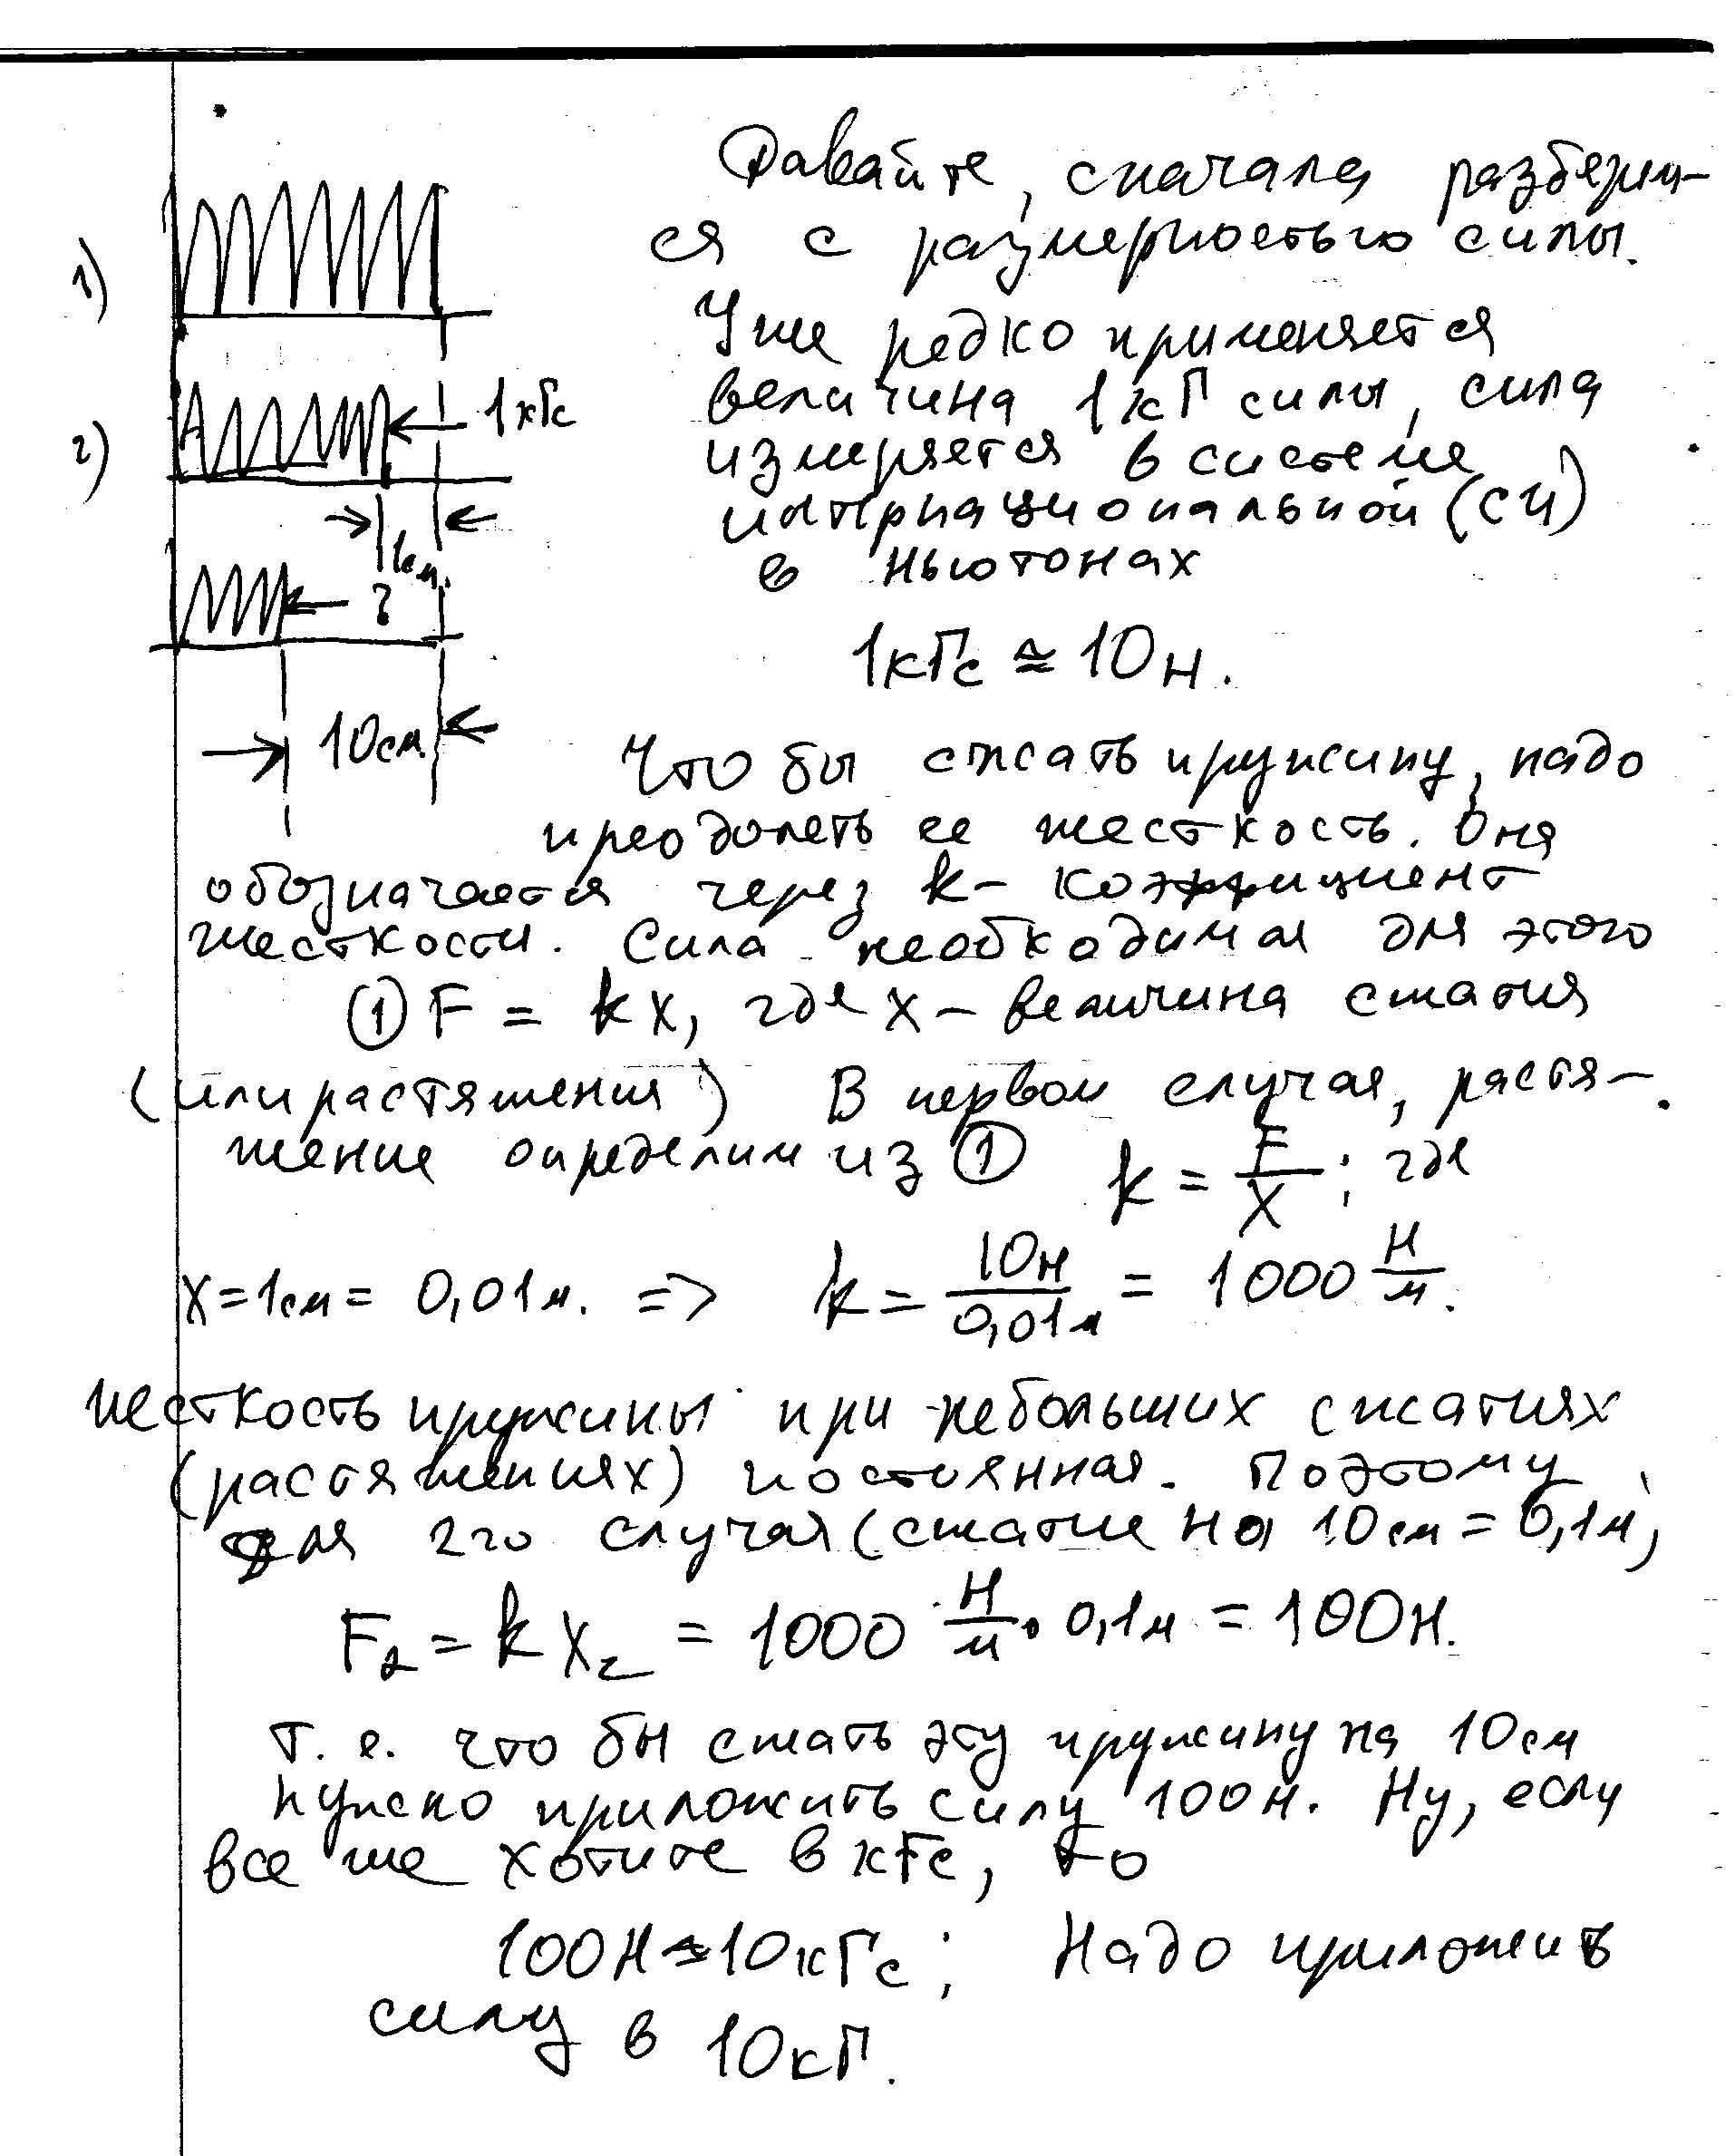 Давайте, сначала разберем-
ся с размерностью силы.
1)
Уже редко применяется
величина 1кГ силы, сила
1кГс
2)
измеряется в системе
интернациональной (СИ)
в ньютонах
1см.
?
1кГс ≈ 10н.
10см
Что бы сжать пружину, надо
преодолеть ее жесткость. Она
обозначается через k - коэффициент
жесткости. Сила необходимая для этого
① F = kx, где x - величина сжатия
(или растяжения) В первом случая, растя-
жение определим из ① k = F/X ; где
X = 1см = 0,01м. => k = 10н/0,01м = 1000 н/м.
Жесткость пружины при небольших сжатиях
(растяжениях) постоянная. Поэтому
для 2го случая (сжатие на 10см = 0,1м,
F₂ = k X₂ = 1000 н/м · 0,1м = 100н.
Т. е. что бы сжать эту пружину на 10см
нужно приложить силу 100н. Ну, если
все же хотите в кГс, то
100Н ≈ 10кГс ; Надо приложить
силу в 10кГ.